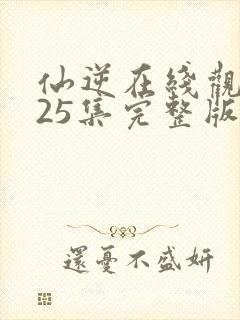 仙逆在綫觀
25集完整版
還憂不盛妍